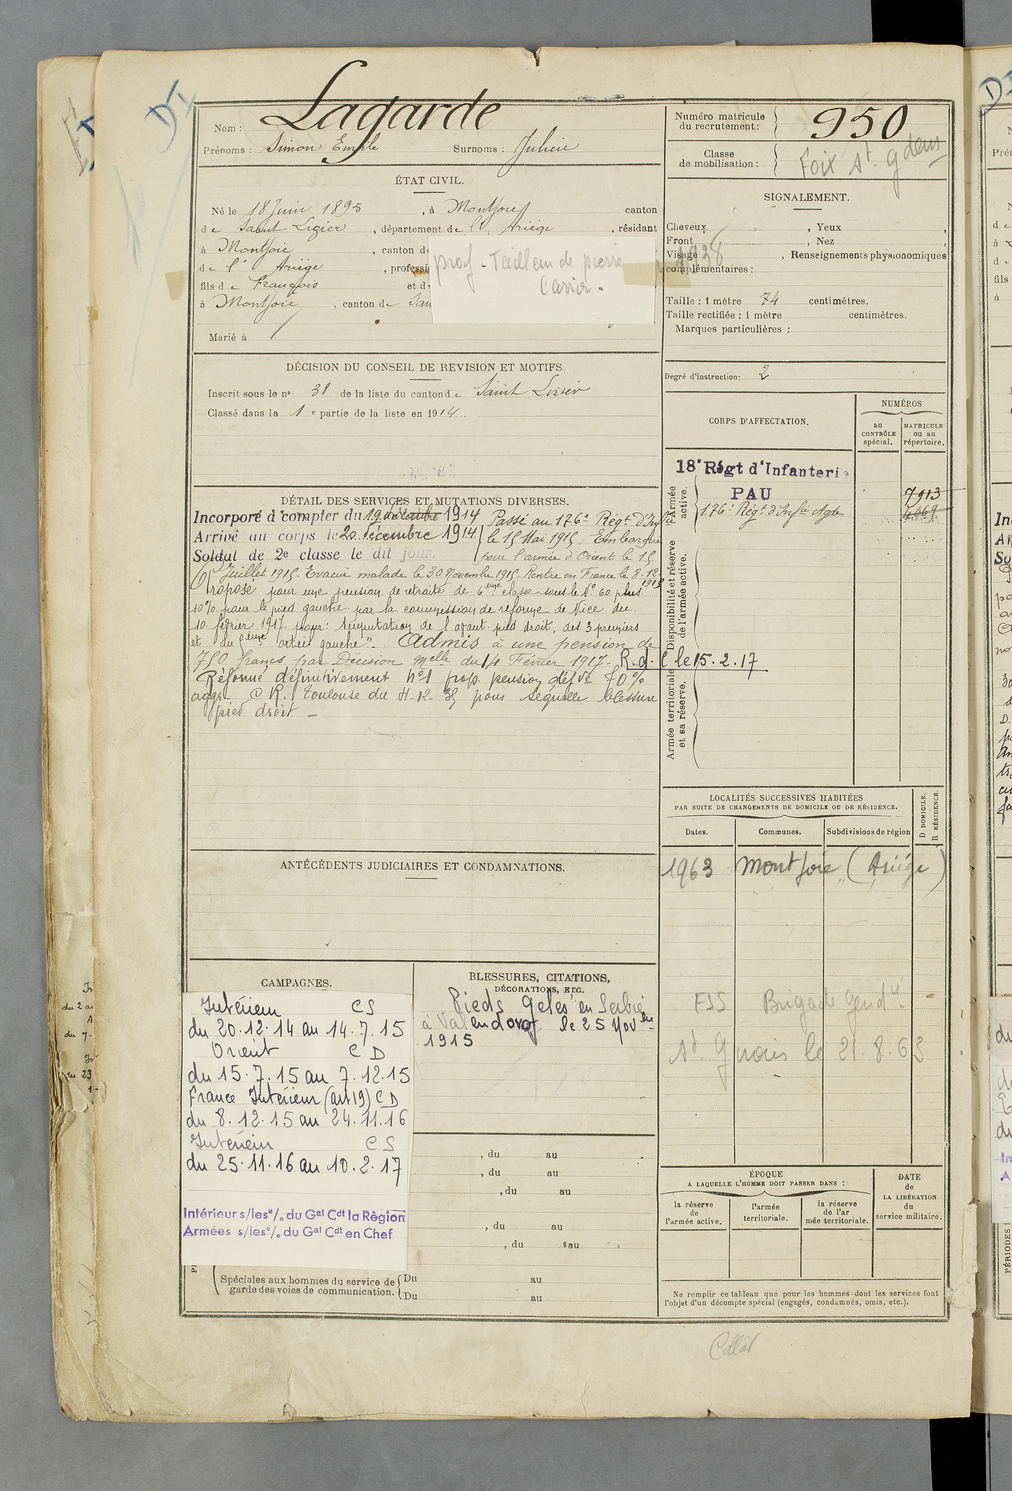 Lagarde
Nom :
Prénoms : Simon Emile Surnoms : Julien
ÉTAT CIVIL.
Né le 18 Juin 1895 , à Montjoie canton
de Saint Lizier , département de l' Ariège , résidant
à Montjoie , canton de
de l' Ariège , professi
prof - Tailleur de pierre
Carrier -
fils de François et de
à Montjoie , canton de Sain
Marié à
DÉCISION DU CONSEIL DE REVISION ET MOTIFS.
Inscrit sous le nº 38 de la liste du canton de Saint Lizier
Classé dans la 1 e partie de la liste en 1914.
DÉTAIL DES SERVICES ET MUTATIONS DIVERSES.
Incorporé à compter du 19 décembre 1914 Passé au 176e Régt d'Infie
Arrivé au corps le 20 décembre 1914 le 15 Mai 1915 Embarqué
Soldat de 2e classe le dit jour. pour l'armée d'Orient le 15
Juillet 1915. Evacué malade le 30 Novembre 1915. Rentré en France le 8-12
1915
Proposé pour une pension de retraite de 6eme classe sous le No 60 plus
10% pour le pied gauche par la commission de réforme de Nice du
10 février 1917 pour : Amputation de l'avant pied droit, des 3 premiers
et du eme orteil gauche". Admis à une pension de
750 francs par Décision Melle du 14 Février 1917- R.d.C le 15.2.17
Réformé définitivement nº1 prop. pension défve 70%
aggr. C.R. Toulouse du 4-12-35 pour séquelle blessure
pied droit -
ANTÉCÉDENTS JUDICIAIRES ET CONDAMNATIONS.
CAMPAGNES.
Intérieur CS
du 20.12.14 au 14.7.15
Orient CD
du 15.7.15 au 7.12.15
France Intérieur (art 19) CD
du 8.12.15 au 24.11.16
Intérieur CS
du 25.11.16 au 10.2.17
Intérieur s/les º/. du Gal Cdt la Région
Armées s/les º/. du Gal Cdt en Chef
BLESSURES, CITATIONS,
DÉCORATIONS, ETC.
Pieds Gelés en Serbie
à Valendovo le 25 Novbre
1915
, du au
, du au
, du au
, du au
, du au
Spéciales aux hommes du service de garde des voies de communication.
Du au
Du au
Numéro matricule
du recrutement : 950
Classe
de mobilisation : Foix St. Gdens
SIGNALEMENT.
Cheveux , Yeux ,
Front , Nez ,
Visage , Renseignements physionomiques
complémentaires :
Taille : 1 mètre 74 centimètres.
Taille rectifiée : 1 mètre centimètres.
Marques particulières :
Degré d'instruction : 2
CORPS D'AFFECTATION.
NUMÉROS
au
CONTRÔLE
spécial.
MATRICULE
ou au
répertoire.
Armée
active.
18e Régt d'Infanterie
PAU 7913
176e Régt d'Infie Agde
Disponibilité et réserve
de l'armée active.
Armée territoriale
et sa réserve.
LOCALITÉS SUCCESSIVES HABITÉES
PAR SUITE DE CHANGEMENTS DE DOMICILE OU DE RÉSIDENCE.
Dates. Communes. Subdivisions de région
D DOMICILE.
R RÉSIDENCE.
1963 Montjoie (Ariège)
Brigade Gendie
St. Girons le 21.8.63
ÉPOQUE
A LAQUELLE L'HOMME DOIT PASSER DANS :
la réserve
de
l'armée active.
l'armée
territoriale.
la réserve
de l'ar
mée territoriale.
DATE
de
LA LIBÉRATION
du
service militaire.
Ne remplir ce tableau que pour les hommes dont les services font
l'objet d'un décompte spécial (engagés, condamnés, omis, etc.).